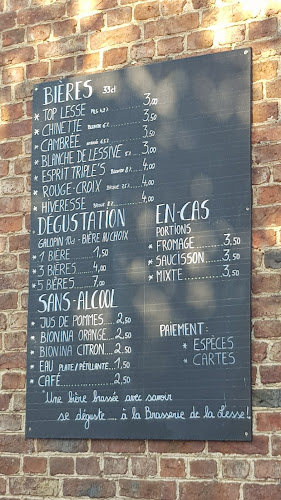 BIÈRES 33cl
* TOP LESSE 3,00
* CHINETTE 3,50
* CAMBRÉE 3,50
* BLANCHE DE LESSIVE 5% 3,00
* ESPRIT TRIPLE'S BLONDE 8% 4,00
* ROUGE-CROIX 4,00
* HIVERESSE 4,00
DÉGUSTATION
GALOPIN 10cl - BIÈRE AU CHOIX
* 1 BIÈRE 1,50
* 3 BIÈRES 4,00
* 5 BIÈRES 7,00
SANS-ALCOOL
* JUS DE POMMES 2,50
* BIONINA ORANGE 2,50
* BIONINA CITRON 2,50
* EAU PLATE/PÉTILLANTE 1,50
* CAFÉ 2,50
EN-CAS
PORTIONS
* FROMAGE 3,50
* SAUCISSON 3,50
* MIXTE 3,50
PAIEMENT:
* ESPÈCES
* CARTES
"Une bière brassée avec savoir
se déguste.... à la Brasserie de la Lesse!